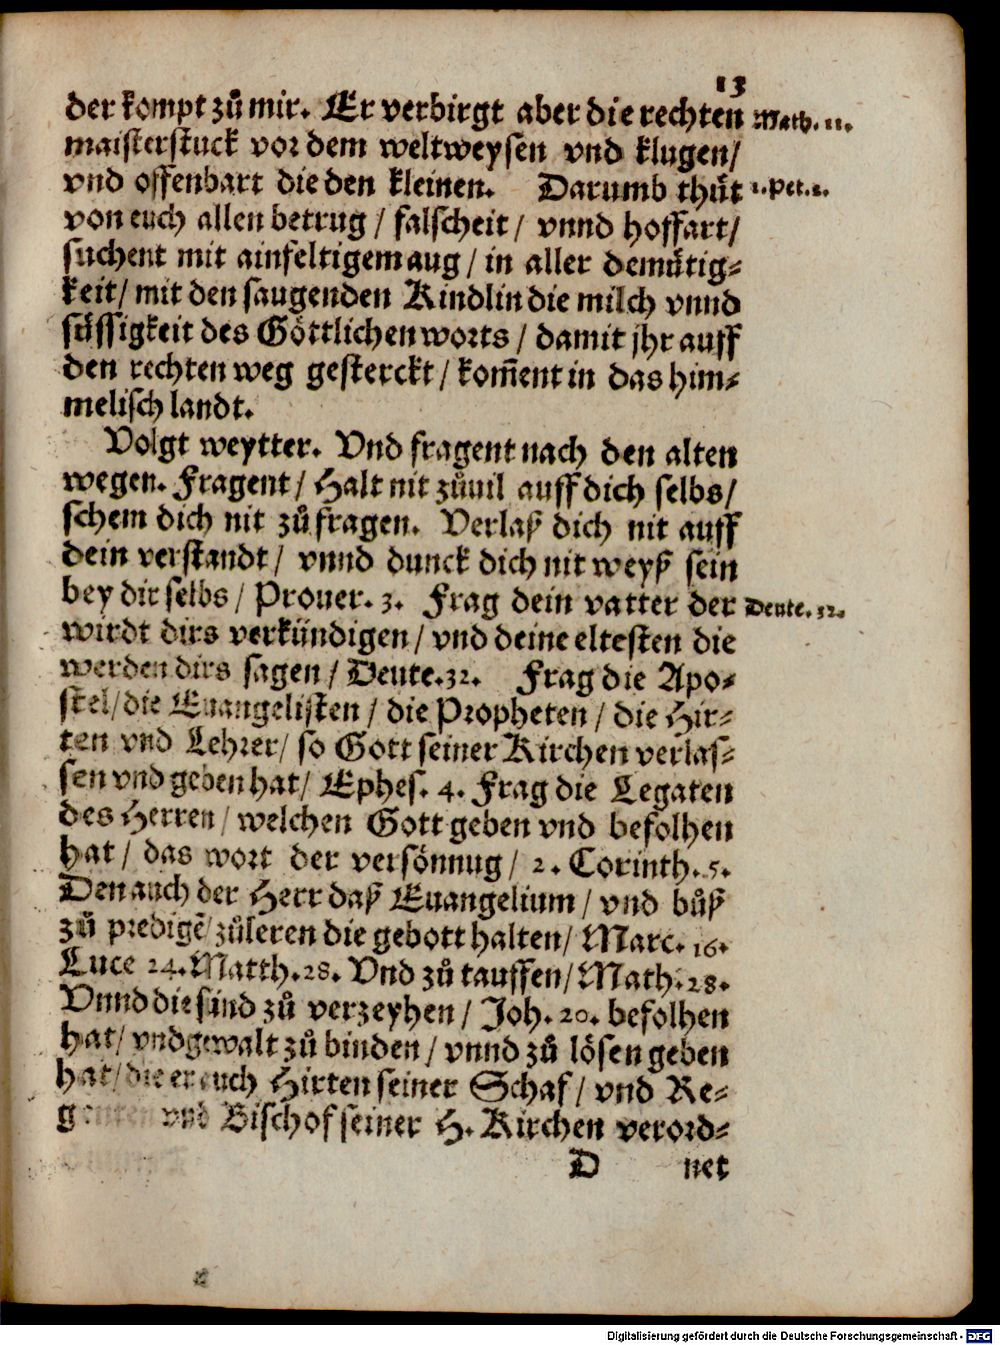 13
der kompt zů mir. Er verbirgt aber die rechten Math. 11.
maisterstuck vor dem weltweysen vnd klugen/
vnd offenbart die den kleinen. Darumb thůt 1. Pet. 2.
von euch allen betrug / falscheit / vnnd hoffart/
suchent mit ainfeltigem aug / in aller demůtig⸗
keit/ mit den saugenden Kindlin die milch vnnd
sůssigkeit des Göttlichen worts / damit jhr auff
den rechten weg gesterckt / kom̃ent in das him⸗
melisch landt.
Volgt weytter. Vnd fragent nach den alten
wegen. Fragent / Halt nit zůuil auff dich selbs/
schem dich nit zů fragen. Verlaß dich nit auff
dein verstandt / vnnd dunck dich nit weyß sein
bey dir selbs / Prouer. 3. Frag dein vatter der Deute. 32.
wirdt dirs verkündigen / vnd deine eltesten die
werden dirs sagen / Deute. 32. Frag die Apo⸗
stel/ die Euangelisten / die Propheten / die Hir⸗
ten vnd Lehrer/ so Gott seiner Kirchen verlas⸗
sen vnd geben hat/ Ephes. 4. Frag die Legaten
des Herren / welchen Gott geben vnd befolhen
hat / das wort der versönnug / 2. Corinth. 5.
Den auch der Herr daß Euangelium / vnd bůß
zů predigẽ/ zůleren die gebott halten/ Marc. 16.
Luce 24. Matth. 28. Vnd zů tauffen/ Math. 28.
Vnnd die sind zů verzeyhen / Joh. 20. befolhen
hat/ vnd gewalt zů binden / vnnd zů lösen geben
hat/ die er euch Hirten seiner Schaf / vnd Re⸗
vnd Bischof seiner H. Kirchen verord⸗
D net
Digitalisierung gefördert durch die Deutsche Forschungsgemeinschaft - DFG